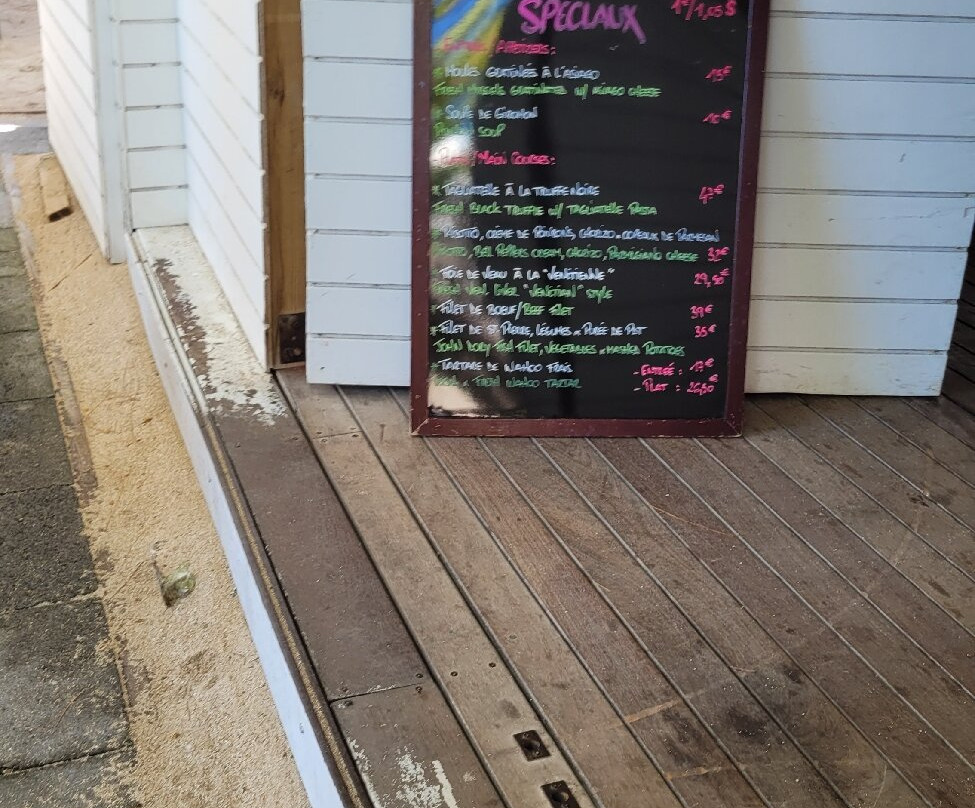 SPÉCIAUX 1€/1,05$
/ APPETIZERS:
* MOULES GRATINÉES À L'ASIAGO 15€
FRESH MUSSELS GRATINATED W/ ASIAGO CHEESE
* SOUPE DE GIROMON 10€
SOUP
/ MAIN COURSES:
* TAGLIATELLE À LA TRUFFE NOIRE
FRESH BLACK TRUFFLE W/ TAGLIATELLE PASTA
RISOTTO, CRÈME DE POIVRONS, CHORIZO & COPEAUX DE PARMESAN
RISOTTO, BELL PEPPERS CREAM, CHORIZO, PARMIGIANO CHEESE 32€
FOIE DE VEAU À LA "VENITIENNE" 29,50€
FRESH VEAL LIVER "VENETIAN" STYLE
* FILET DE BOEUF/BEEF FILET 39€
* FILET DE ST PIERRE, LÉGUMES & PURÉE DE PDT 35€
JOHN DORY FISH FILET, VEGETABLES & MASHED POTATOES
* TARTARE DE WAHOO FRAIS - ENTRÉE : 17€
FRESH WAHOO TARTAR - PLAT : 26,50€